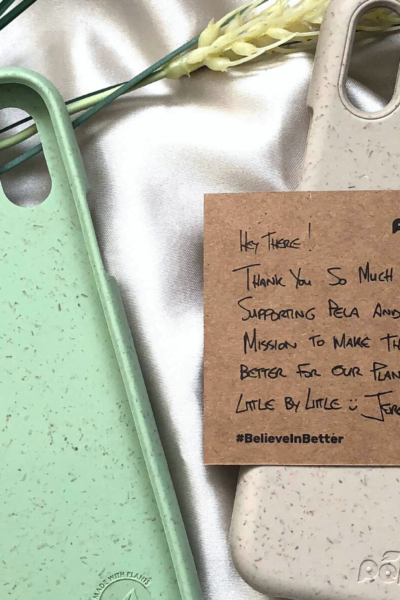 Hey There!
Thank You So Much
Supporting Pela And
Mission to Make Th
Better For Our Plan
Little By Little Jer
#BelieveInBetter
MADE WITH PLANTS
pela